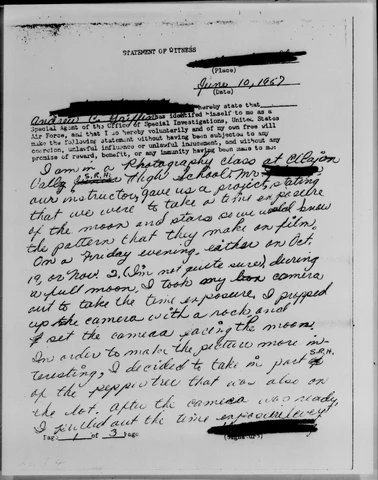 STATEMENT OF WITNESS
(Place)
June 10, 1967
(Date)
hereby state that
Andrew C. has identified himself to me as a
Special Agent of the Office of Special Investigations, United States
Air Force, and that I do hereby voluntarily and of my own free will
make the following statement without having been subjected to any
coercion, unlawful influence or unlawful inducement, and without any
promise of reward, benefit, or any immunity having been made to me:
I am in a Photography class at El Cajon
Valley S.R.H. High School. Mr.
our instructor, gave us a project, stating
that we were to take a time exposure
of the moon and stars so we would know
the pattern that they make on film.
On a Friday evening, either on Oct.
19, or Nov. 2, I'm not quite sure, during
a full moon, I took my camera
out to take the time exposure, I propped
up the camera with a rock, and
set the camera facing the moon.
In order to make the picture more in-
teresting, I decided to take in part S.R.H.
of the peppertree that was also on
the lot. After the camera was ready,
I pulled out the time exposure lever
Page 1 of 3 page
(Signature)